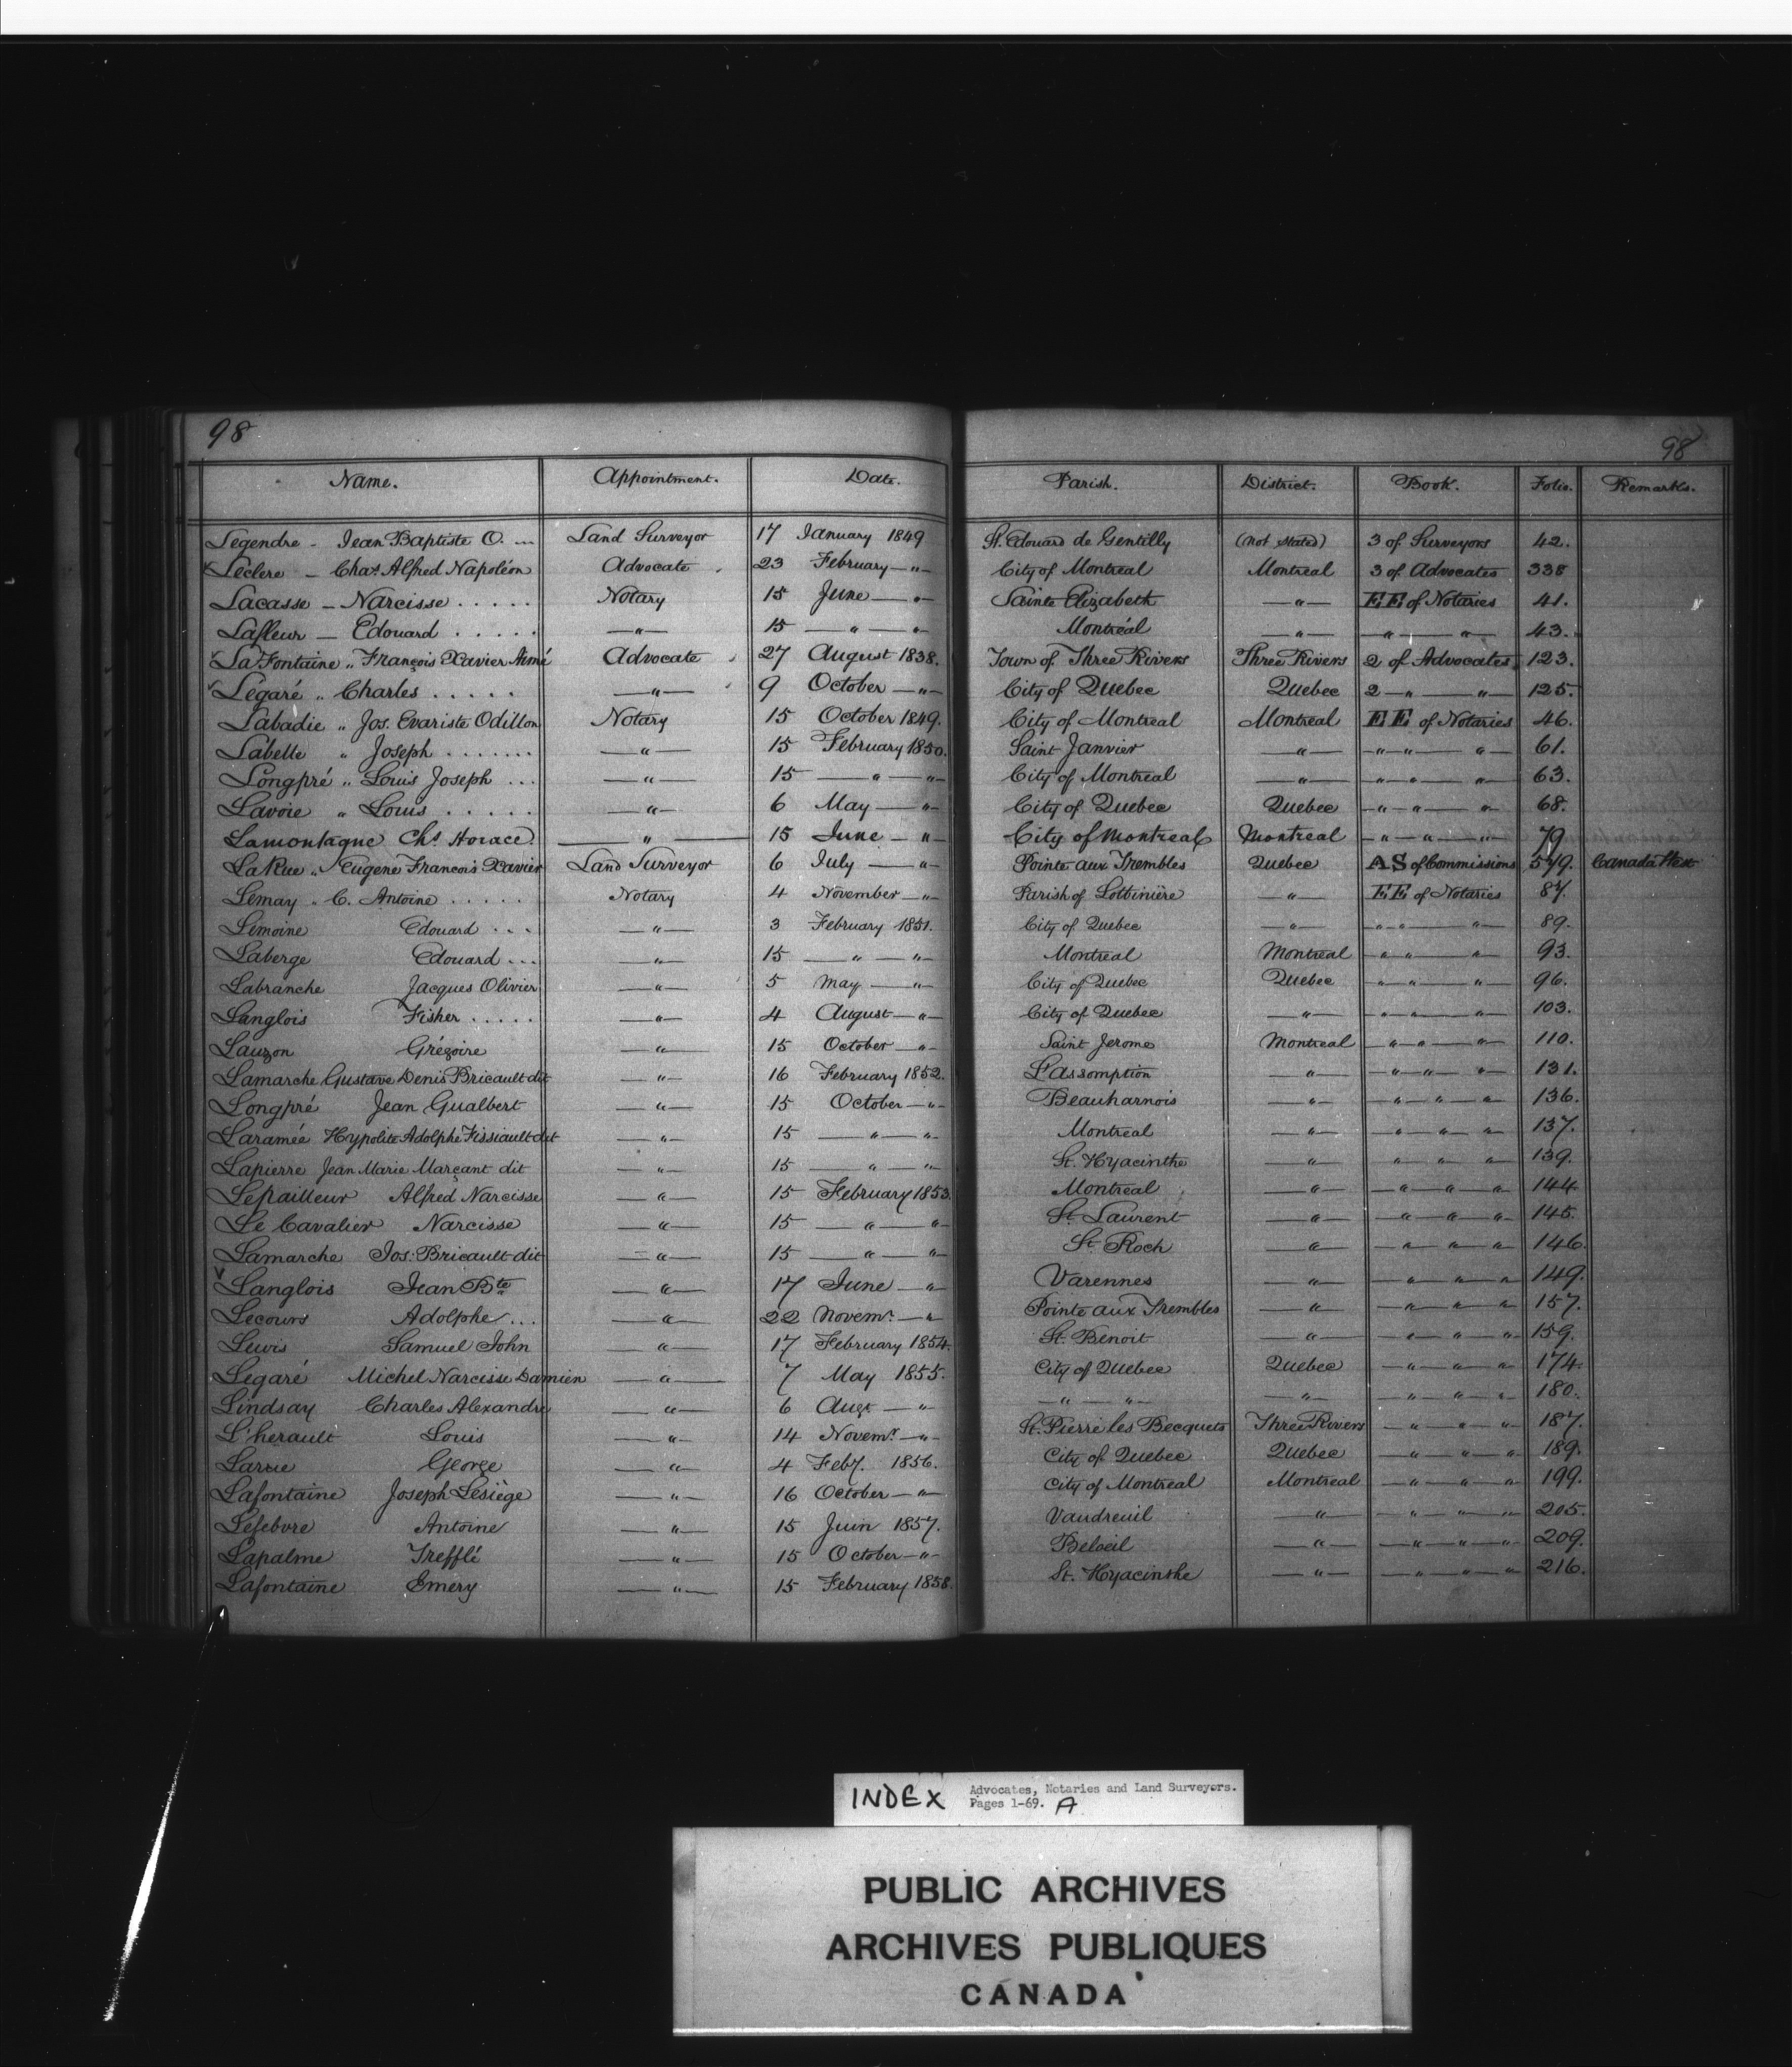 98
98
Name. Appointment. Date. Parish. District. Book. Folio. Remarks.
Legendre - Jean Baptiste O. ... Land Surveyor 17 January 1849 St. Edouard de Gentilly (not stated) 3 of Surveyors 42.
Leclere - Chas. Alfred Napoléon Advocate 23 February —"— City of Montreal Montreal 3 of Advocates 338
Lacasse - Narcisse . . . . . Notary 15 June —"— Sainte Elizabeth —"— EE of Notaries 41.
Lafleur - Edouard . . . . . —"— 15 —"—"— Montréal —"— —"—"— 43.
LaFontaine " François Xavier Aimé Advocate 27 August 1838. Town of Three Rivers Three Rivers 2 of Advocates 123.
Légaré " Charles . . . . . —"— 9 October —"— City of Quebec Quebec 2 —"—"— 125.
Labadie " Jos. Evariste Odillon Notary 15 October 1849. City of Montreal Montreal EE of Notaries 46.
Labelle " Joseph . . . . . . . —"— 15 February 1850. Saint Janvier —"— —"—"—"— 61.
Longpré " Louis Joseph ... —"— 15 —"—"— City of Montreal —"— —"—"—"— 63.
Lavoie " Louis . . . . . . —"— 6 May —"— City of Quebec Quebec —"—"—"— 68.
Lamontagne Chs. Horace —"— 15 June —"— City of Montreal Montreal —"—"—"— 79
LaRue " Eugene François Xavier Land Surveyor 6 July —"— Pointe aux Trembles Quebec AS of Commissions 579. Canada West
Lemay " C. Antoine . . . . . Notary 4 November —"— Parish of Lotbinière —"— EE of Notaries 87.
Limoine Edouard . . . —"— 3 February 1851. City of Quebec —"— —"—"—"— 89.
Laberge Edouard ... —"— 15 —"—"— Montreal Montreal —"—"—"— 93.
Labranche Jacques Olivier —"— 5 May —"— City of Quebec Quebec —"—"—"— 96.
Langlois Fisher . . . . . —"— 4 August —"— City of Quebec —"— —"—"—"— 103.
Lauzon Grégoire —"— 15 October —"— Saint Jerome Montreal —"—"—"— 110.
Lamarche Gustave Denis Bricault dit —"— 16 February 1852. L'Assomption —"— —"—"—"— 131.
Longpré Jean Gualbert —"— 15 October —"— Beauharnois —"— —"—"—"— 136.
Laramée Hypolite Adolphe Fissiault dit —"— 15 —"—"— Montreal —"— —"—"—"— 137.
Lapierre Jean Marie Marçant dit —"— 15 —"—"— St. Hyacinthe —"— —"—"—"— 139.
Lepailleur Alfred Narcisse —"— 15 February 1853. Montreal —"— —"—"—"— 144
Le Cavalier Narcisse —"— 15 —"—"— St. Laurent —"— —"—"—"— 145.
Lamarche Jos: Bricault dit —"— 15 —"—"— St. Roch —"— —"—"—"— 146.
Langlois Jean Bte —"— 17 June —"— Varennes —"— —"—"—"— 149.
Lecours Adolphe ... —"— 22 Novemr. —"— Pointe aux Trembles —"— —"—"—"— 157.
Lewis Samuel John —"— 17 February 1854. St. Benoit —"— —"—"—"— 159.
Légaré Michel Narcisse Damien —"— 7 May 1855. City of Quebec Quebec —"—"—"— 174.
Lindsay Charles Alexandre —"— 6 Augt —"— —"—"— —"— —"—"—"— 180.
L'herault Louis —"— 14 Novemr. —"— St. Pierre les Becquets Three Rivers —"—"—"— 187.
Larue George —"— 4 Feby. 1856. City of Quebec Quebec —"—"—"— 189.
Lafontaine Joseph Lesiège —"— 16 October —"— City of Montreal Montreal —"—"—"— 199.
Lefebvre Antoine —"— 15 Juin 1857. Vaudreuil —"— —"—"—"— 205.
Lapalme Trefflé —"— 15 October —"— Beloeil —"— —"—"—"— 209.
Lafontaine Emery —"— 15 February 1858. St. Hyacinthe —"— —"—"—"— 216.
INDEX Advocates, Notaries and Land Surveyors.
Pages 1-69. A
PUBLIC ARCHIVES
ARCHIVES PUBLIQUES
CANADA